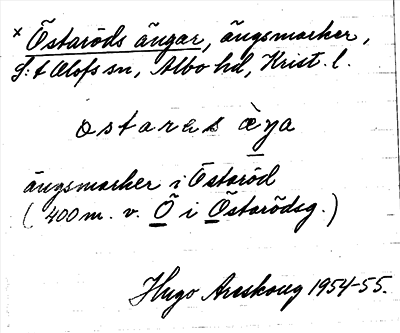 x Östaröds ängar, ängsmarker,
S:t Olofs sn, Albo hd, Krist. l.
ostarɛs ɛ̀ŋa
ängsmarker i Östaröd
(400 m. v. Ö i Östarödsg.)
Hugo Areskoug 1954-55.